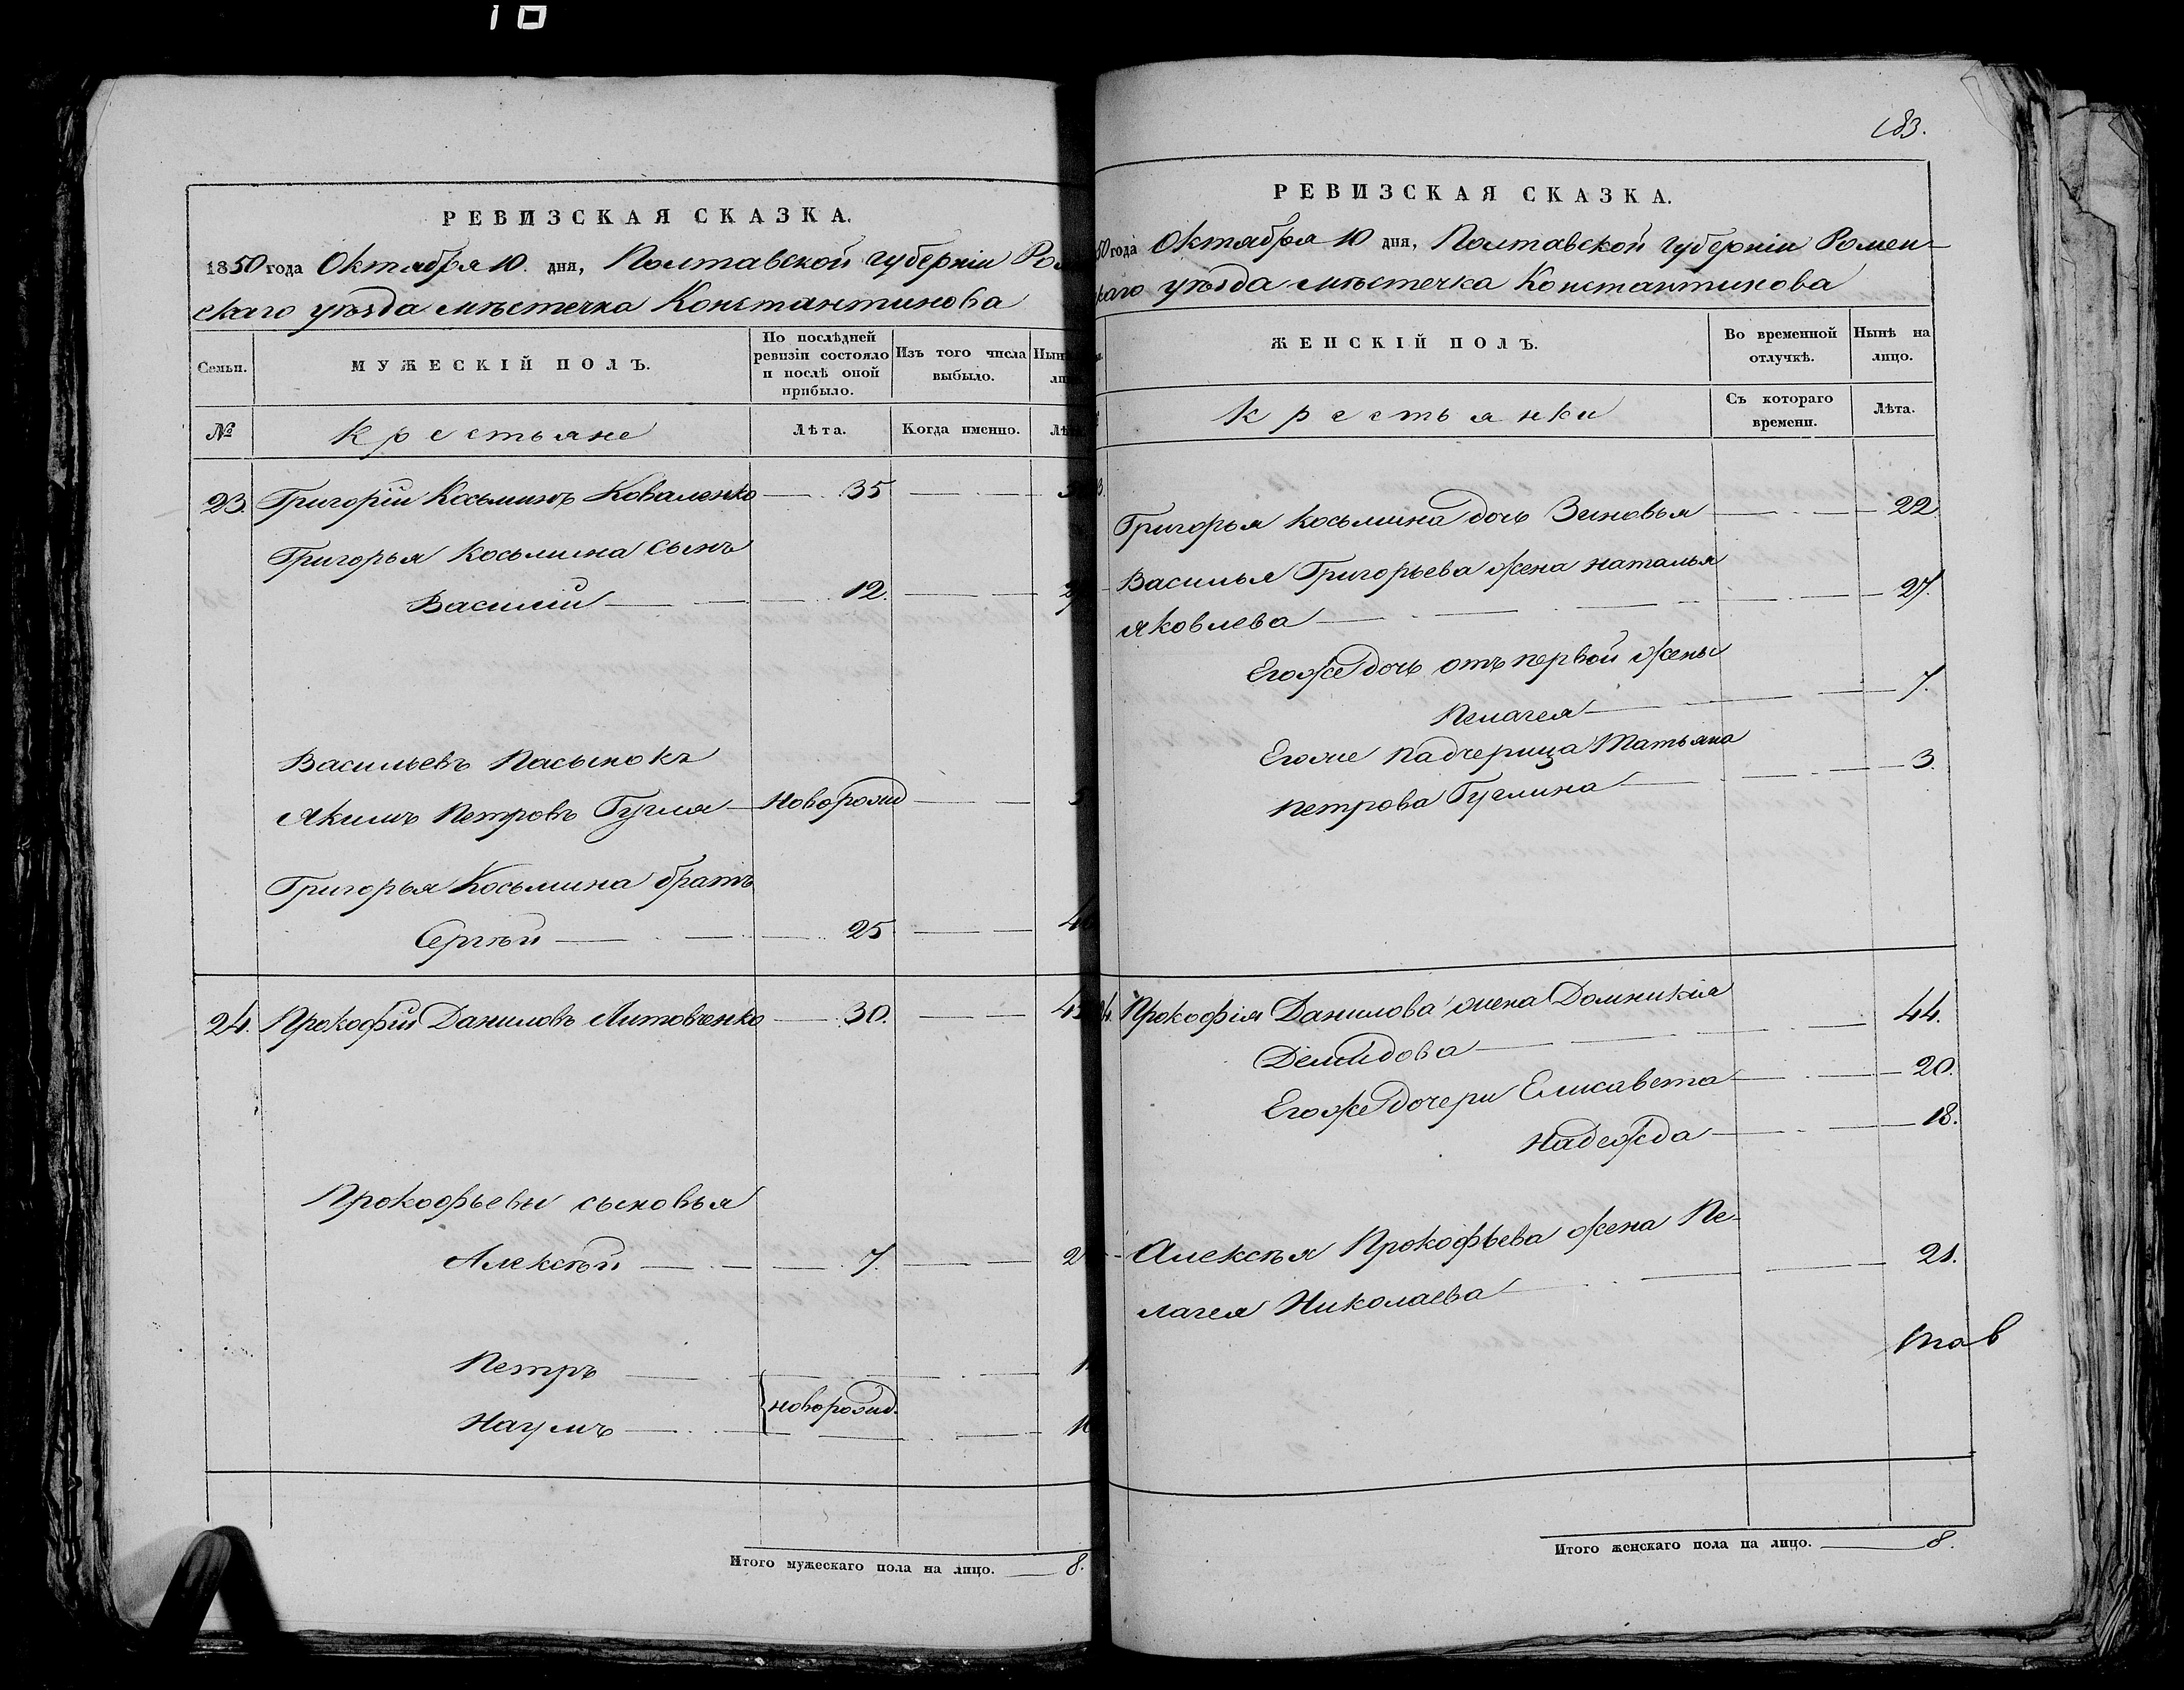 10
РЕВИЗСКАЯ СКАЗКА.
1850 года Октября 10. дня, Полтавской губерніи Ром
скаго уѣзда мѣстечка Константинова
Семьи.
МУЖЕСКІЙ ПОЛЪ.
По послѣдней ревизіи состояло и послѣ оной прибыло.
Изъ того числа выбыло.
№
Крестьяне
Лѣта.
Когда именно.
23. Григорій Косьминъ Коваленко 35
Григорья Косьмина сынъ
Василій 12.
Васильевъ Пасынокъ
Якимъ Петровъ Гугля Новорожд
Григорья Косьмина братъ
Сергѣй 25
24. Прокофій Даниловъ Литовченко 30.
Прокофьевы сыновья
Алексѣй 7.
Петръ
Наумъ новорожд.
Итого мужескаго пола на лицо. 8.
183.
РЕВИЗСКАЯ СКАЗКА.
50 года Октября 10 дня, Полтавской губерніи Ромен-
скаго уѣзда мѣстечка Константинова
ЖЕНСКІЙ ПОЛЪ.
Во временной отлучкѣ.
Нынѣ на лицо.
Крестьянки
Съ котораго времени.
Лѣта.
Григорья Косьмина дочь Зиновья 22
Василья Григорьева жена Наталья
Яковлева 27.
Егоже дочь отъ первой жены
Пелагея 7.
Егоже падчерица Татьяна
Петрова Гуглина 3.
24. Прокофія Данилова жена Домникія
Демидова 44.
Егоже дочери Елисавета 20.
Надежда 18.
Алексѣя Прокофьева жена Пе-
лагея Николаева 21.
Итого женскаго пола на лицо. 8.